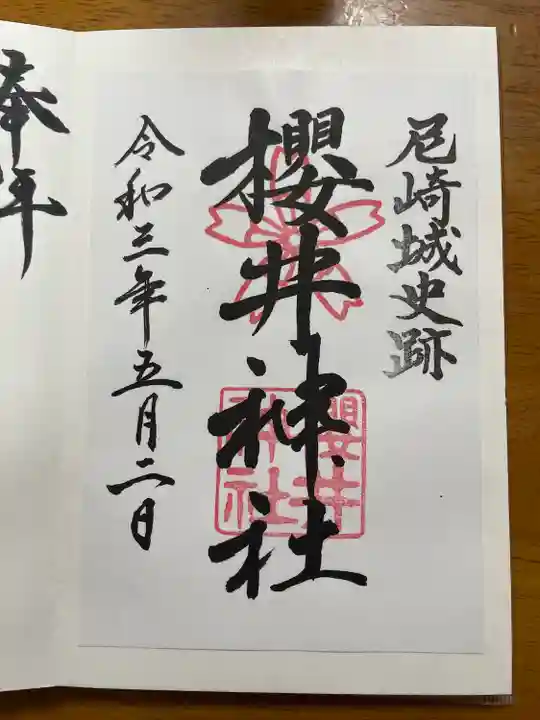 尼崎城史跡
櫻井神社
櫻井神社
令和三年五月二日
奉
年